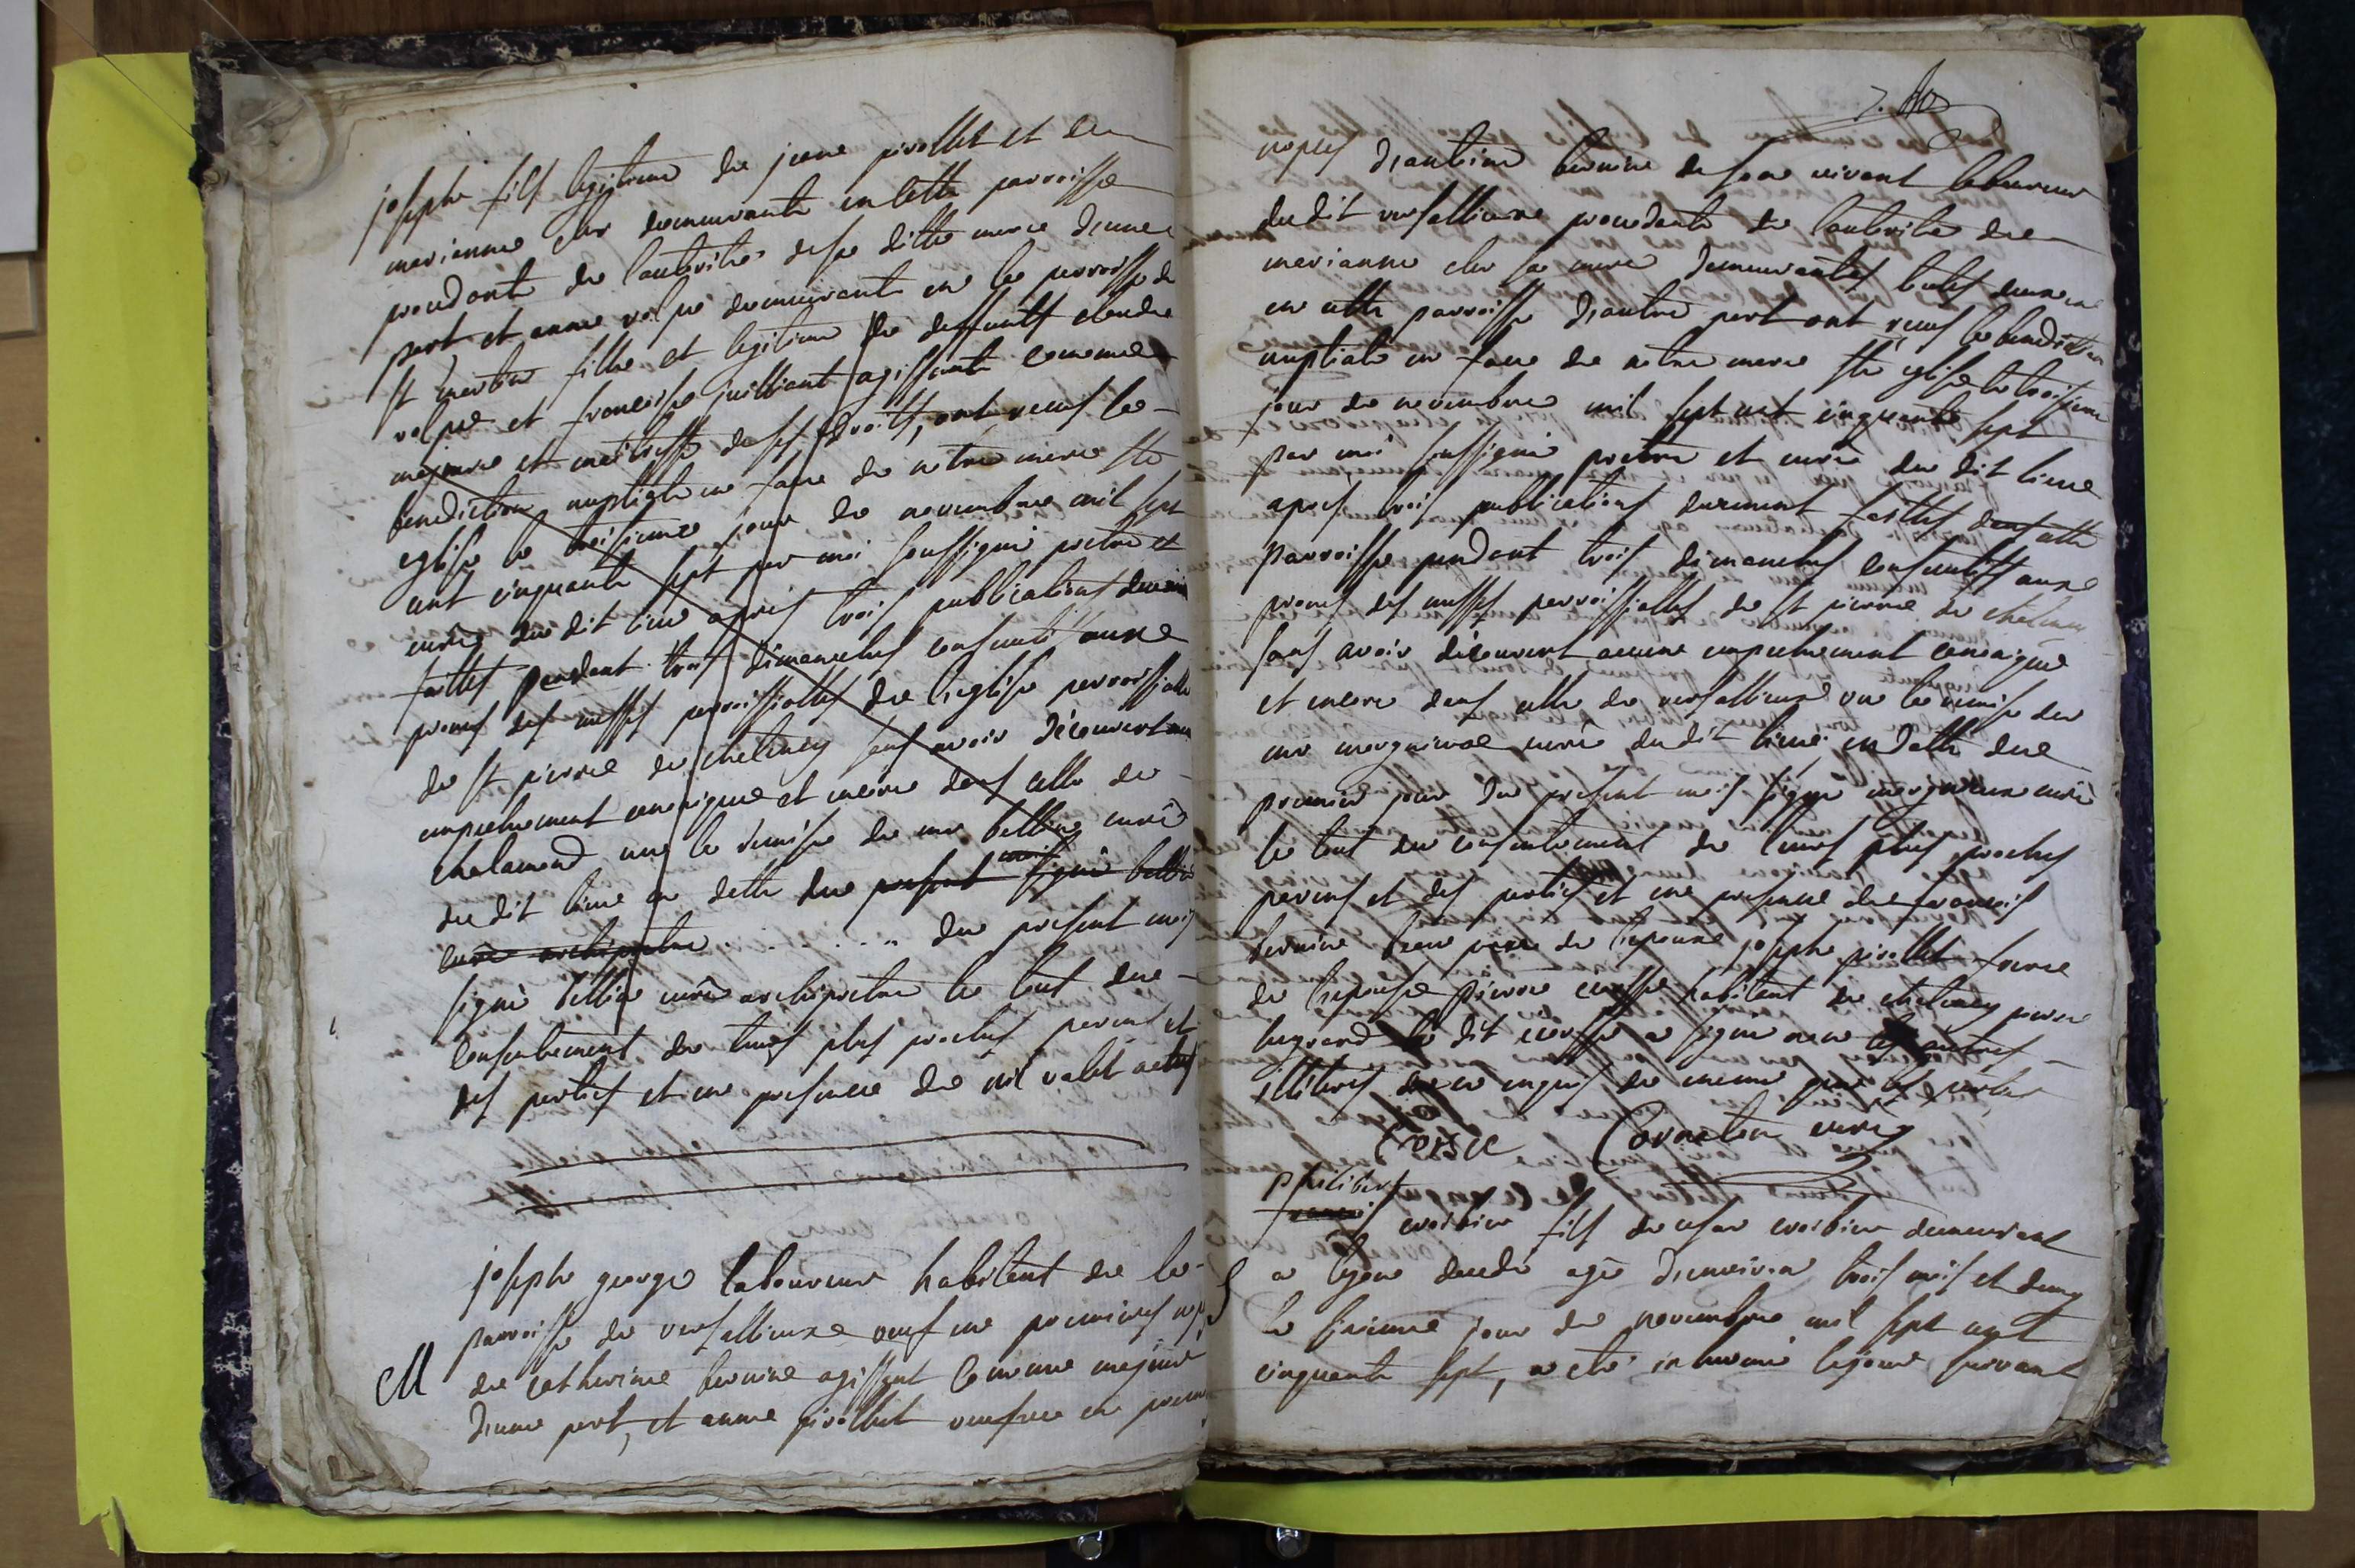 joseph fils legitime de jeane pirollet et de
marianne cler demeurants en cette parroisse
procedant de l'autorité de sa ditte mere d'une
part et anne volpie demeurante en la parroisse de
st martin fille et legitime de deffunts claude
volpie et francoise juillient agissante comme
majeure et maitresse de ses droits, ont reçus la
benediction nuptiale en face de notre mere ste
eglise le troisieme jour de novembre mil sept
cent cinquante sept par moi soussigné pretre et
curé du dit lieu apres trois publications deuem
faittes pendant trois dimanches consecutifs aux
prones des messes parroissialles de l'eglise parroissialle
de st pierre de chatenay sans avoir découvert au
empechement canonique et encore dans celle de
chalamond vue la remise de mr bellin curé
du dit lieu en datte du present mois signé bellin
curé archipretre du present mois
signé bellin curé archipretre le tout du
consentement de leurs plus proches parens et
des parties et en presence de nil valet actus
joseph george laboureur habitant de la
parroisse de versallieux veuf en premieres nop
M
de catherine bernin agissant comme majeur
d'une part, et anne pirollet veufve en prem
nopces d'antoine bernin de son vivant laboureur
du dit versallieux procedante de l'autorité de
marianne cler sa mere demeurantes toutes deux
en cette parroisse d'autre part ont reçus la benediction
nuptiale en face de notre mere ste eglise le troisieme
jour de novembre mil sept cent cinquante sept
par moi soussigné pretre et curé du dit lieu
apres trois publications deuement faittes dans cette
parroisse pendant trois dimanches consecutifs aux
prones des messes parroissialles de st pierre de chatenay
sans avoir découvert aucune empechement canonique
et encore dans celle de versallieux vue la remise de
mr margnieux curé du dit lieu en datte du
premier jour du present mois signé margnieux curé
le tout du consentement de leurs plus proches
parens et des parties et en presence de francois
bernin beau pere de l'epoux joseph pirollet frere
de l'epouse pierre corsse habitant de chatenay
le dit corsse a signé non les autres
illiteres de ce enquis de meme que les parties
Corsse Cornaton curé
philibert
francois croibier fils de cesar croibier demeurant
S
a lyon decedé agé d'environ trois mois et demy
le sixieme jour de novembre mil sept cent
cinquante sept, a eté inhumé le jour suivant